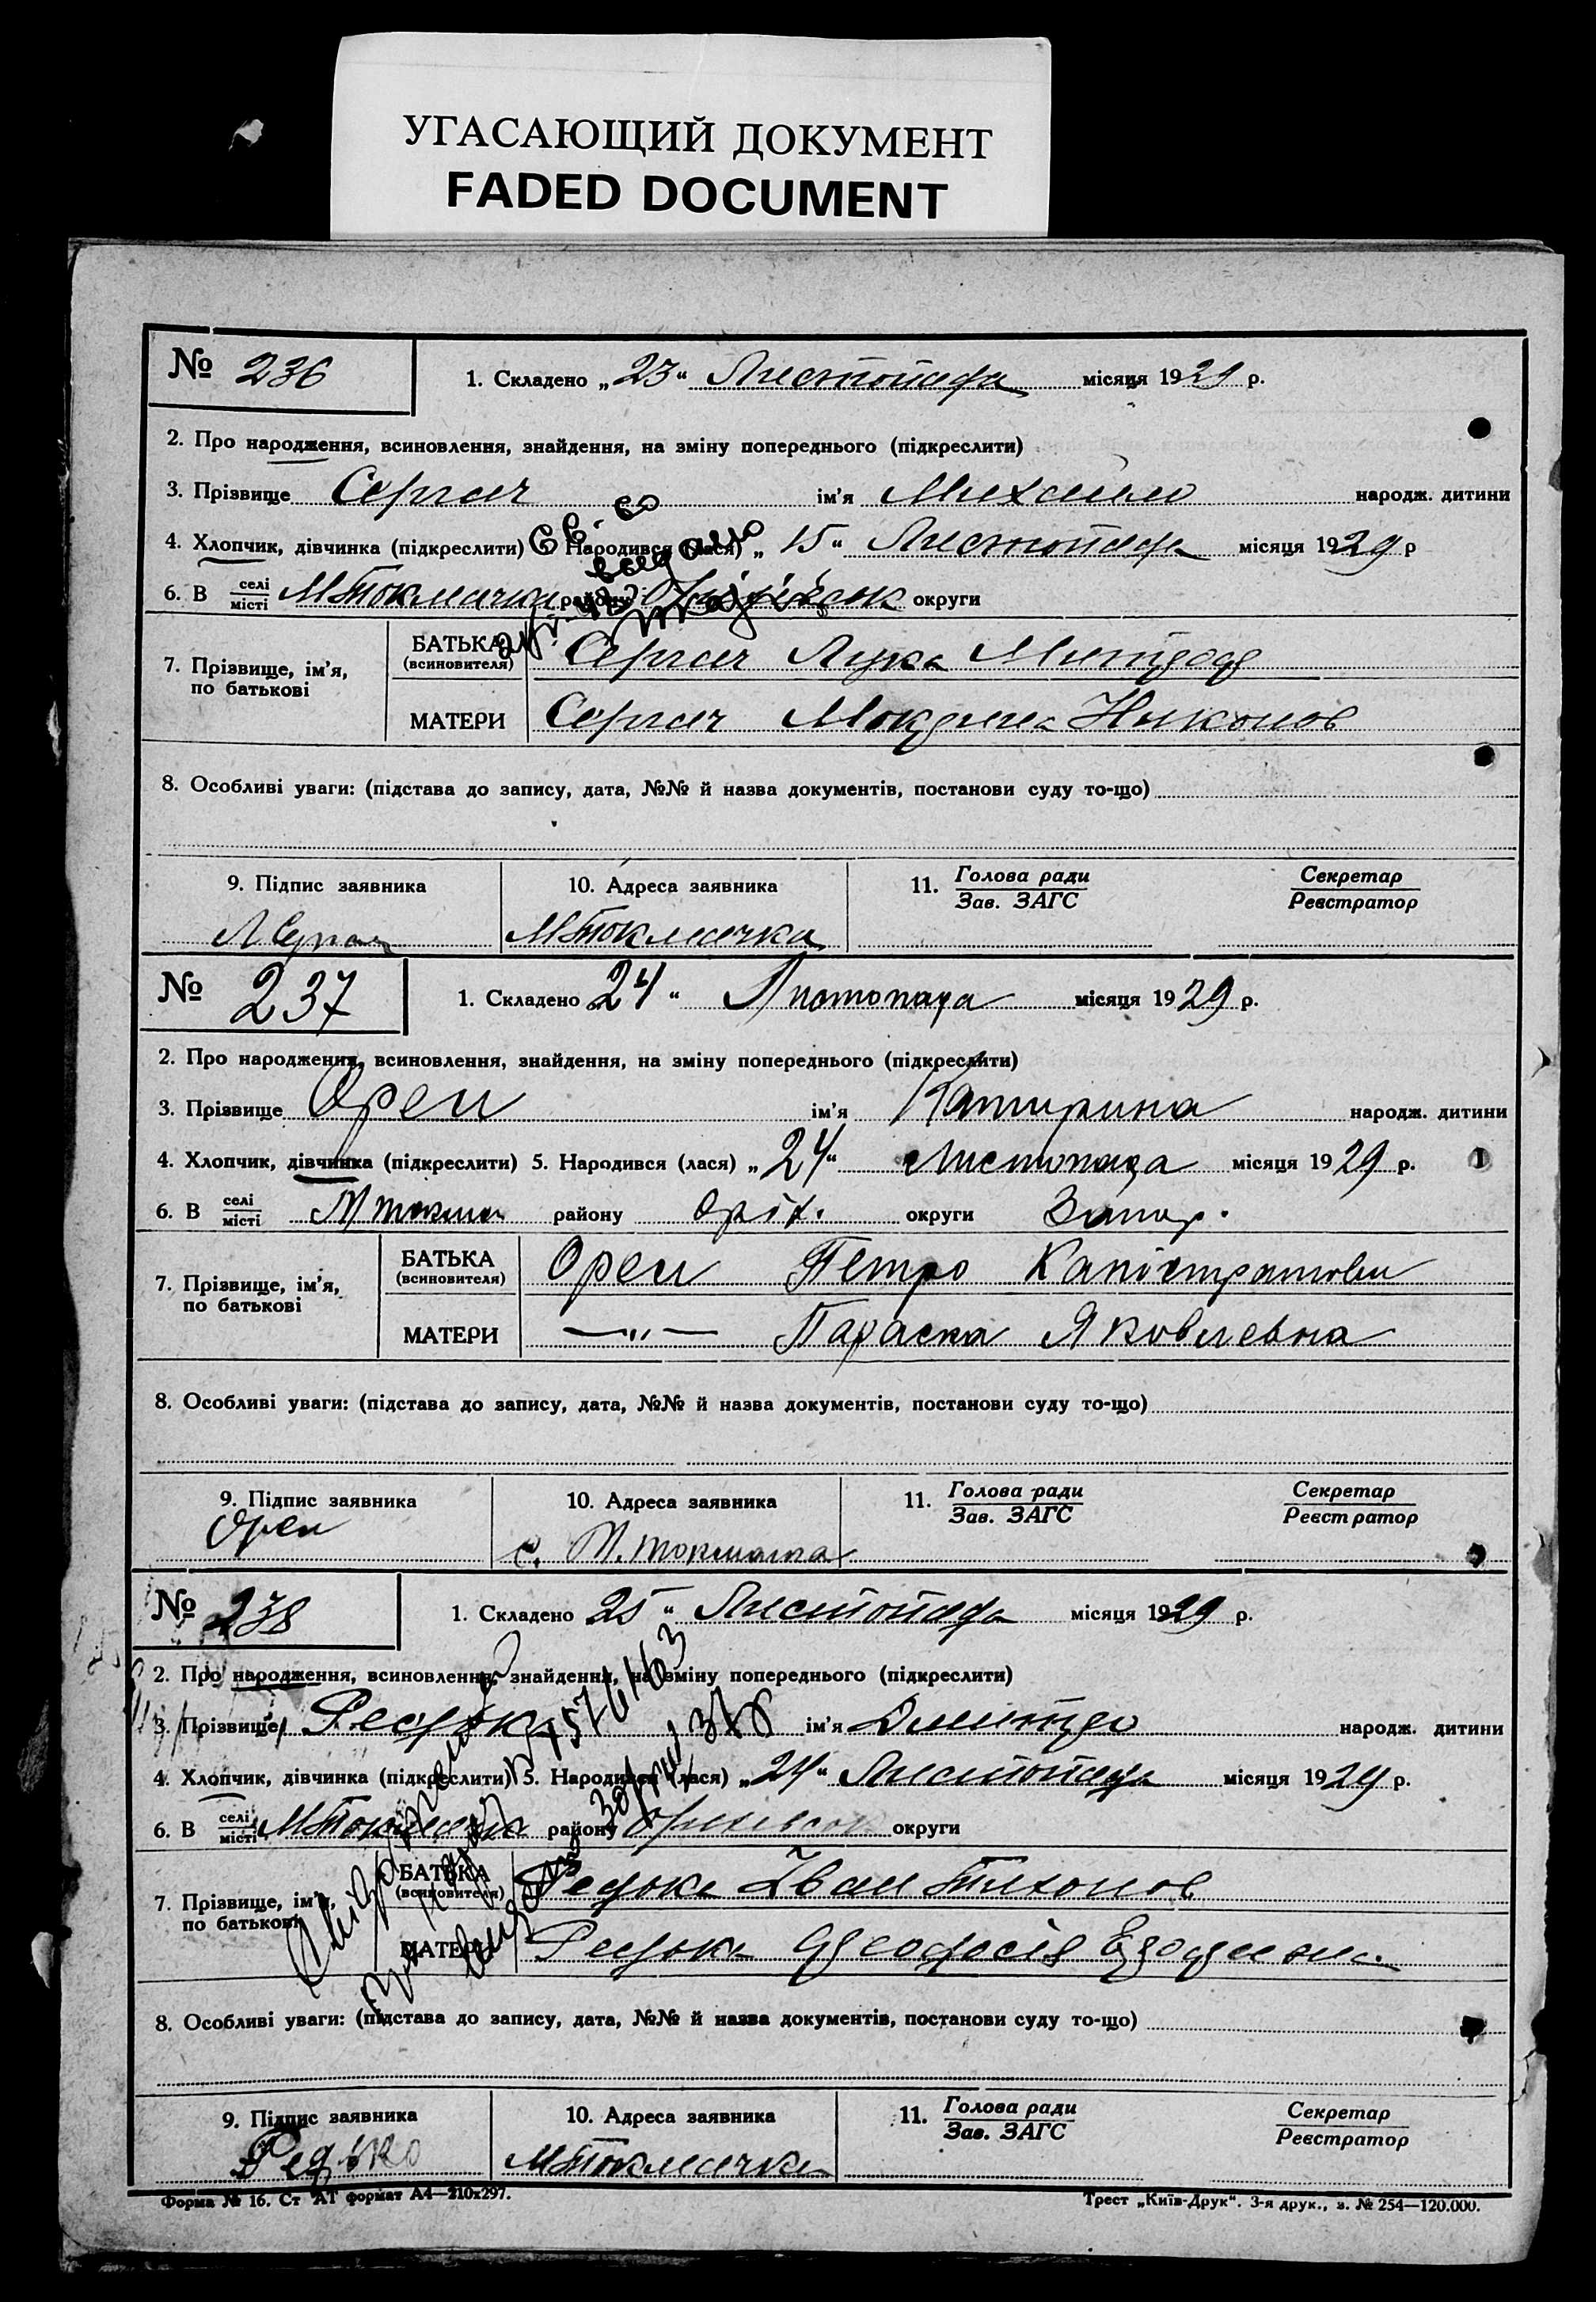 УГАСАЮЩИЙ ДОКУМЕНТ
FADED DOCUMENT
№ 236
1. Складено „23“ Листопада місяця 1929 р.
2. Про народження, всиновлення, знайдення, на зміну попереднього (підкреслити)
3. Прізвище Сергач ім’я Михайло народж. дитини
4. Хлопчик, дівчинка (підкреслити) 5. Народився (лася) „15“ Листопада місяця 1929 р
6. В селі/місті МТокмачка району округи
7. Прізвище, ім’я, по батькові
БАТЬКА (всиновителя) Сергач Лука
МАТЕРИ Сергач Никонов
8. Особливі уваги: (підстава до запису, дата, №№ й назва документів, постанови суду то-що)
9. Підпис заявника 10. Адреса заявника 11. Голова ради/Зав. ЗАГС Секретар/Реєстратор
МТокмачка
№ 237
1. Складено 24“ Листопада місяця 1929 р.
2. Про народження, всиновлення, знайдення, на зміну попереднього (підкреслити)
3. Прізвище Орел ім’я Катирина народж. дитини
4. Хлопчик, дівчинка (підкреслити) 5. Народився (лася) „24“ Листопада місяця 1929 р.
6. В селі/місті району Оріх. округи Запор.
7. Прізвище, ім’я, по батькові
БАТЬКА (всиновителя) Орел Петро Капістратови
МАТЕРИ —„— Параска Яковлевна
8. Особливі уваги: (підстава до запису, дата, №№ й назва документів, постанови суду то-що)
9. Підпис заявника 10. Адреса заявника 11. Голова ради/Зав. ЗАГС Секретар/Реєстратор
Орел с. М. токмачка
№ 238
1. Складено 25“ Листопада місяця 1929 р.
2. Про народження, всиновлення, знайдення, на зміну попереднього (підкреслити)
3. Прізвище Редька ім’я Дмитро народж. дитини
4. Хлопчик, дівчинка (підкреслити) 5. Народився (лася) „24“ Листопада місяця 1929 р.
6. В селі/місті МТокмачка району округи
7. Прізвище, ім’я, по батькові
БАТЬКА (всиновителя) Редька Іван Тихонов
МАТЕРИ Редька Феодосія
8. Особливі уваги: (підстава до запису, дата, №№ й назва документів, постанови суду то-що)
9. Підпис заявника 10. Адреса заявника 11. Голова ради/Зав. ЗАГС Секретар/Реєстратор
Редько МТокмачка
Форма № 16. Ст АТ формат А4—210х297.
Трест „Київ-Друк“. 3-я друк., з. № 254—120.000.